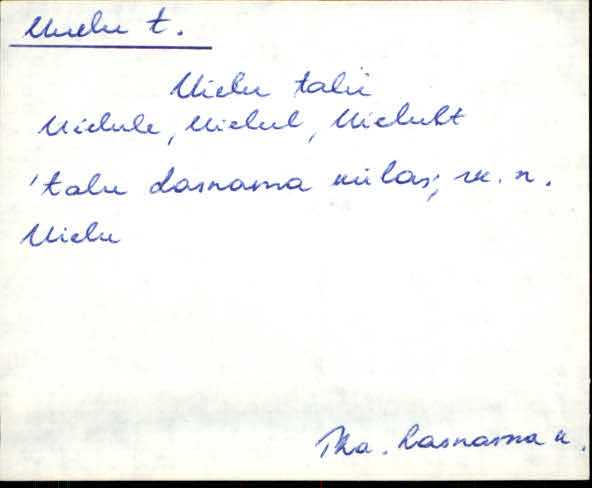 Uuelu t.
Uielu talu
Uielule, Uielul, Uielult
'talu Lasnama külas; rk. n.
Uielu
Pha. Lasnama k.